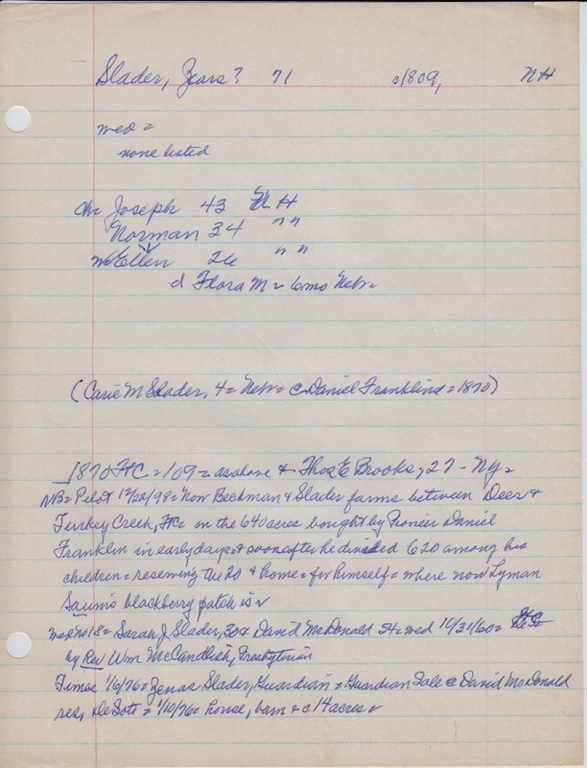 Slader, Zears? 71 c1809, NH
med =
none listed
ch= Joseph 43 NH
Norman 34 " "
w Ellen 26 " "
d Flora M = 6mo Nebr=
(Carie M Slader, 4 = Nebr = c Daniel Franklins = 1870)
1870 FtC = 109 = as above & Thos E Brooks, 27 - Ny =
NB= Pilot 12/28/98= Now Beckman & Slader farms between Deer &
Turkey Creek, FtC= on the 640 acres bought by Pioneer Daniel
Franklin in early days & soon after he divided 620 among his
children = reserving the 20 & home = for himself = where now Lyman
Saums blackberry patch is =
med no 18 = Sarah J Slader, 30 & David McDonald 54= med 10/31/60=
by Rev Wm McCandlish, Presbyterian
Times 1/6/76= Zenas Slader, Guardian = Guardian Sale @ David McDonald
res, DeSoto = 1/10/76= house, barn & c 14 acres =